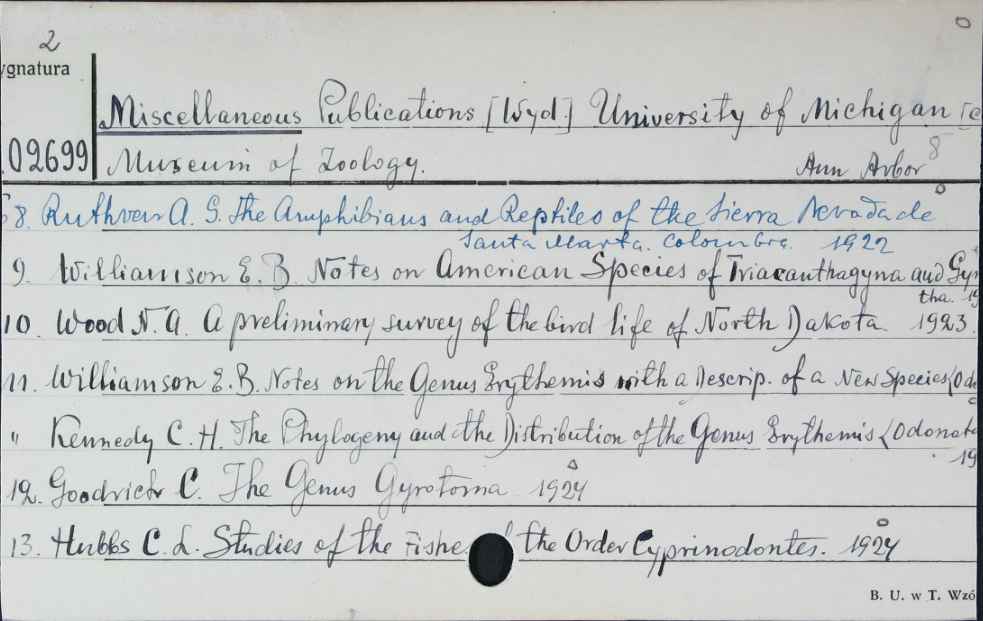 2
ygnatura
Miscellaneous Publications [Wyd.] University of Michigan
02699 Museum of Zoology. Ann Arbor 8°
8. Ruthven A. G. The Amphibians and Reptiles of the Sierra Nevada de
Santa Marta. Colombia. 1922
9. Williamson E. B. Notes on American Species of Triacanthagyna and Gyn
tha. 19
10. Wood N. A. A preliminary survey of the bird life of North Dakota 1923.
11. Williamson E. B. Notes on the Genus Erythemis with a Descrip. of a New Species (Od
" Kennedy C. H. The Phylogeny and the Distribution of the Genus Erythemis (Odonata
19
12. Goodrich C. The Genus Gyrotoma 1924
13. Hubbs C. L. Studies of the Fishe the Order Cyprinodontes. 1924
B. U. w T. Wzó